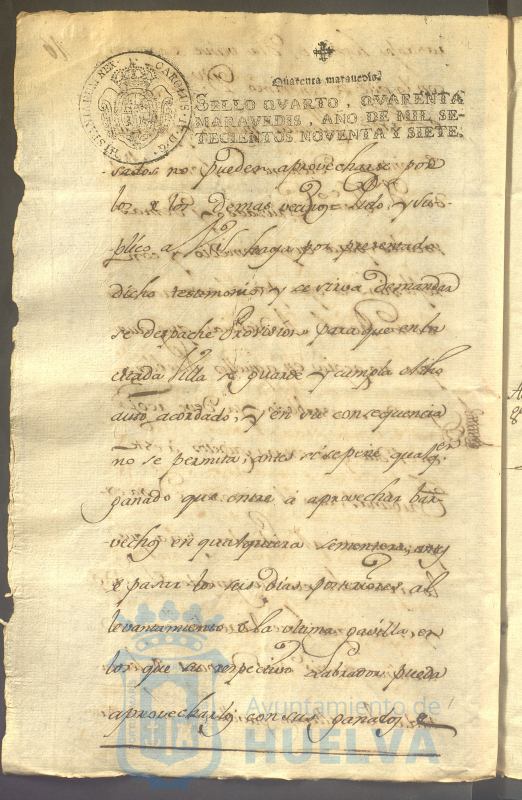 Quarenta maravedis.
SELLO QVARTO, QVARENTA
MARAVEDIS, AÑO DE MIL SE-
TECIENTOS NOVENTA Y SIETE.
CAROLUS IV D.G. HISPANIAR. REX
sados no pueden aprovecharse por
los demas vecinos = Pido y su-
plico a haga por presentado
dicho testimonio, y se sirva demandar
se despache Provision para que en la
citada Villa se guarde y cumpla dicho
auto acordado, y en su consequencia
no se permita, antes se pene qualqr.
ganado que entre á aprovechar bar-
vechos en qualquiera sementera, antes
de pasar los seis dias posteriores al
levantamiento de la ultima gavilla, en
los que su respectivo Labrador pueda
aprovecharlos con sus ganados
Ayuntamiento de
HUELVA